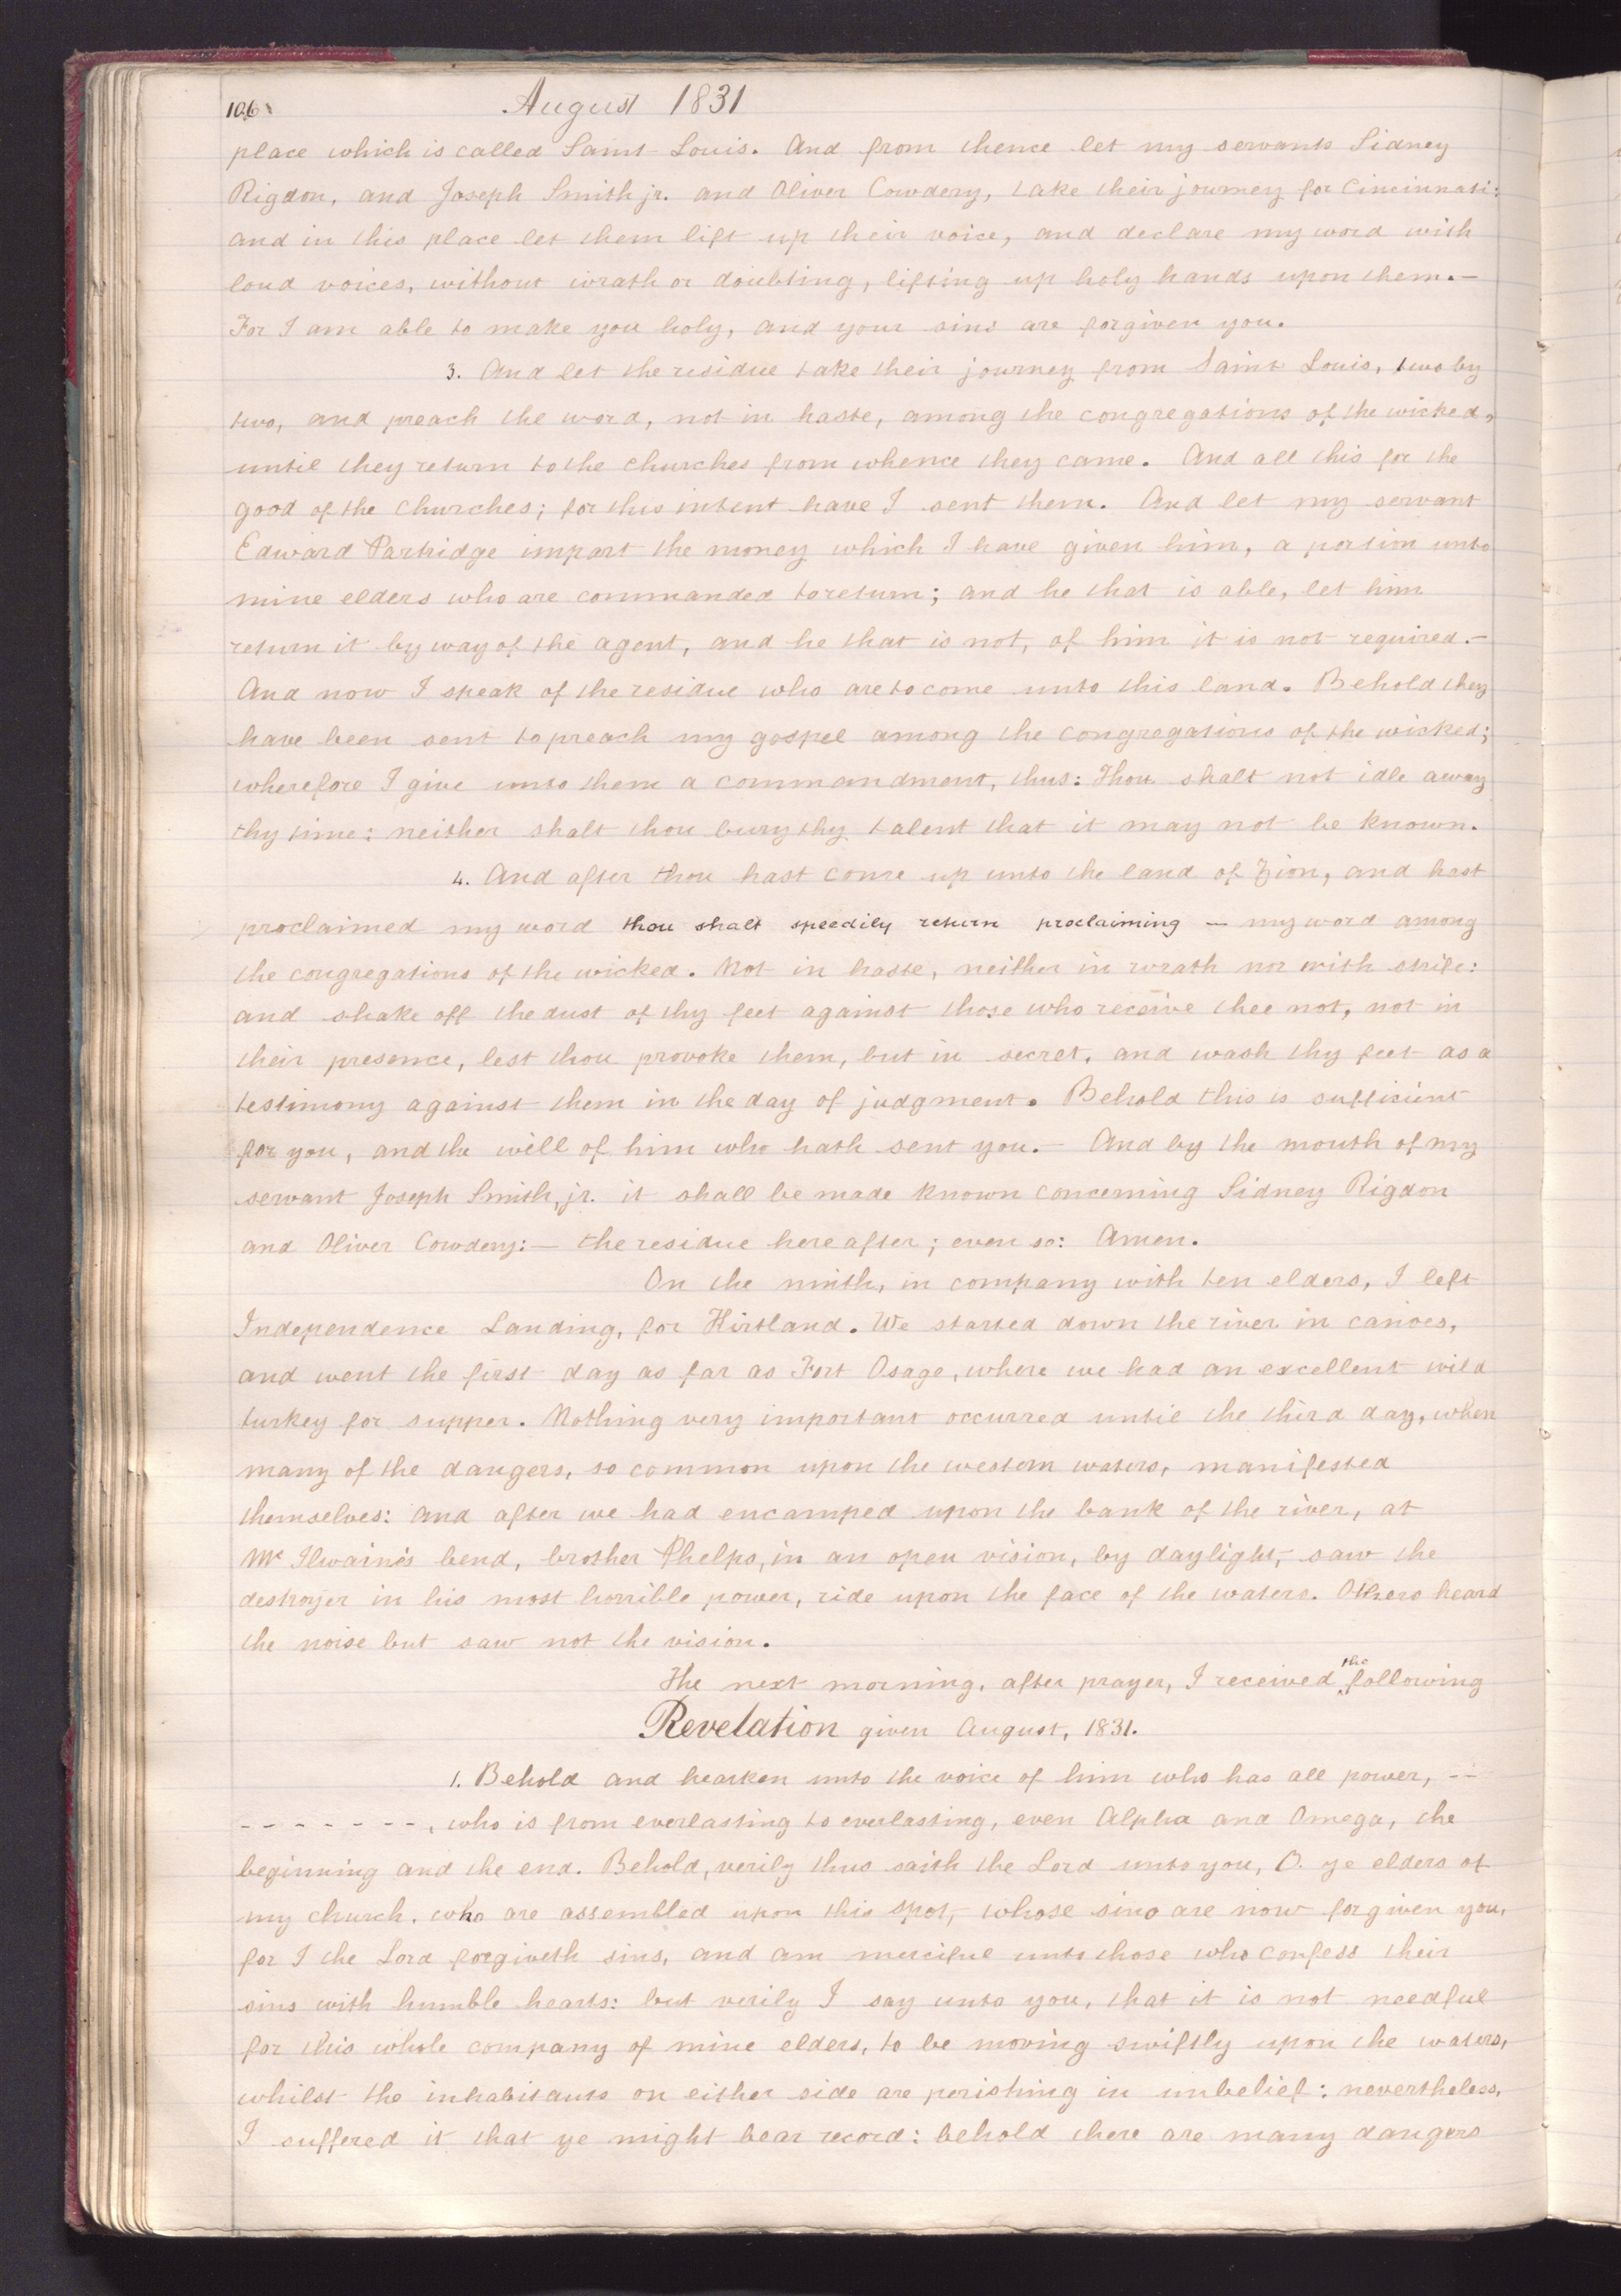 106
August 1831
place which is called Saint Louis. And from thence let my servants Sidney
Rigdon, and Joseph Smith jr. and Oliver Cowdery, take their journey for Cincinnati:
and in this place let them lift up their voice, and declare my word with
loud voices, without wrath or doubting, lifting up holy hands upon them.—
For I am able to make you holy, and your sins are forgiven you.
3. And let the residue take their journey from Saint Louis, two by
two, and preach the word, not in haste, among the congregations of the wicked,
until they return to the churches from whence they came. And all this for the
good of the churches; for this intent have I sent them. And let my servant
Edward Partridge impart the money which I have given him, a portion unto
mine elders who are commanded to return; and he that is able, let him
return it by way of the agent, and he that is not, of him it is not required.—
And now I speak of the residue who are to come unto this land. Behold they
have been sent to preach my gospel among the congregations of the wicked;
wherefore I give unto them a commandment, thus: Thou shalt not idle away
thy time: neither shalt thou bury thy talent that it may not be known.
4. And after thou hast come up unto the land of Zion, and hast
proclaimed my word thou shalt speedily return proclaiming — my word among
the congregations of the wicked. Not in haste, neither in wrath nor with strife:
and shake off the dust of thy feet against those who receive thee not, not in
their presence, lest thou provoke them, but in secret, and wash thy feet as a
testimony against them in the day of judgment. Behold this is sufficient
for you, and the will of him who hath sent you.— And by the mouth of my
servant Joseph Smith, jr. it shall be made known concerning Sidney Rigdon
and Oliver Cowdery:— the residue hereafter; even so: Amen.
On the ninth, in company with ten elders, I left
Independence Landing, for Kirtland. We started down the river in canoes,
and went the first day as far as Fort Osage, where we had an excellent wild
turkey for supper. Nothing very important occurred until the third day, when
many of the dangers, so common upon the western waters, manifested
themselves: and after we had encamped upon the bank of the river, at
Mc Ilwain's bend, brother Phelps, in an open vision, by daylight, saw the
destroyer in his most horrible power, ride upon the face of the waters. Others heard
the noise but saw not the vision.
The next morning, after prayer, I received the following
Revelation given August, 1831.
1. Behold and hearken unto the voice of him who has all power, --
- - - - - - -, who is from everlasting to everlasting, even Alpha and Omega, the
beginning and the end. Behold, verily thus saith the Lord unto you, O. ye elders of
my church, who are assembled upon this spot, whose sins are now forgiven you,
for I the Lord forgiveth sins, and am merciful unto those who confess their
sins with humble hearts: but verily I say unto you, that it is not needful
for this whole company of mine elders, to be moving swiftly upon the waters,
whilst the inhabitants on either side are perishing in unbelief: nevertheless,
I suffered it that ye might bear record: behold there are many dangers